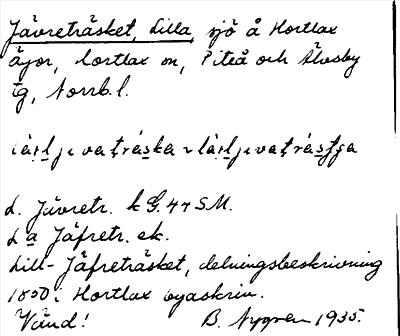 Jävreträsket, Lilla, sjö å Hortlax
ägor, hortlax sn, Piteå och Älvsby
tg, Norrb. l.
L. Jävretr. k G. 44 S.M.
La Jäfretr. ek.
Lill-Jäfreträsket, delningsbeskrivning
1850 i Hortlax byaskrin.
Vänd! B. Nygren 1935.